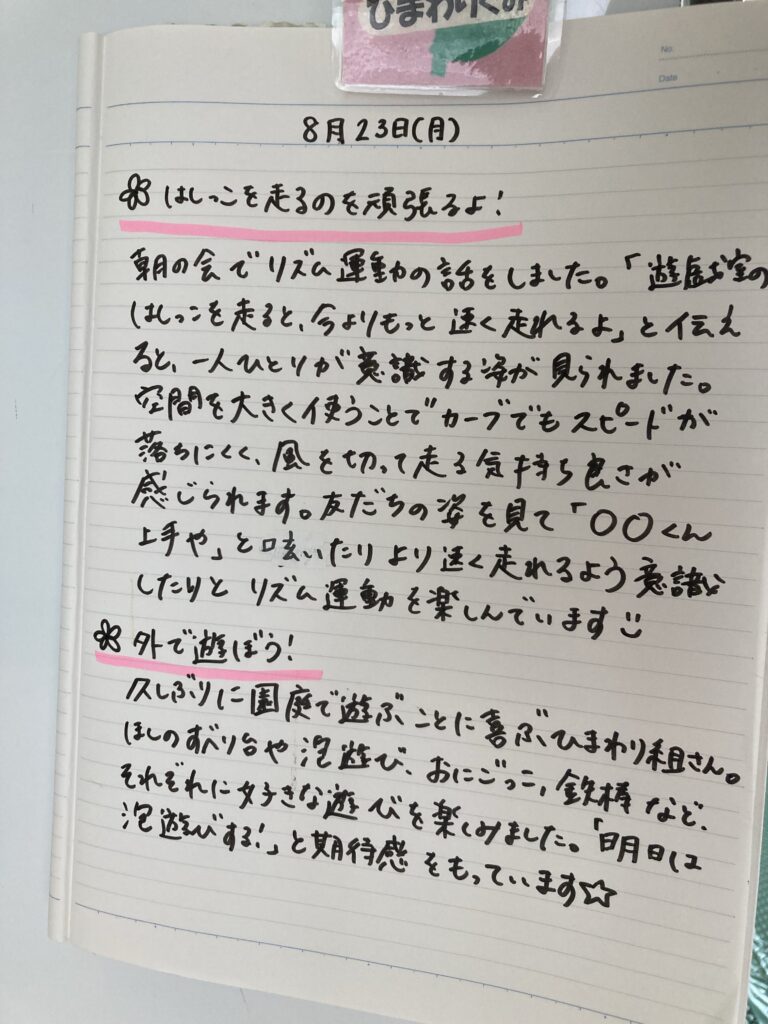 ひまわりぐみ
No.
Date
8月23日(月)
はしっこを走るのを頑張るよ!
朝の会でリズム運動の話をしました。「遊戯室の
はしっこを走ると、今よりもっと速く走れるよ」と伝え
ると、一人ひとりが意識する姿が見られました。
空間を大きく使うことでカーブでもスピードが
落ちにくく、風を切って走る気持ち良さが
感じられます。友だちの姿を見て「〇〇くん
上手や」と呟いたりより速く走れるよう意識
したりとリズム運動を楽しんでいます
外で遊ぼう!
久しぶりに園庭で遊ぶことに喜ぶひまわり組さん。
ほしのすべり台や泡遊び、おにごっこ、鉄棒など、
それぞれに好きな遊びを楽しみました。「明日は
泡遊びする!」と期待感をもっています☆